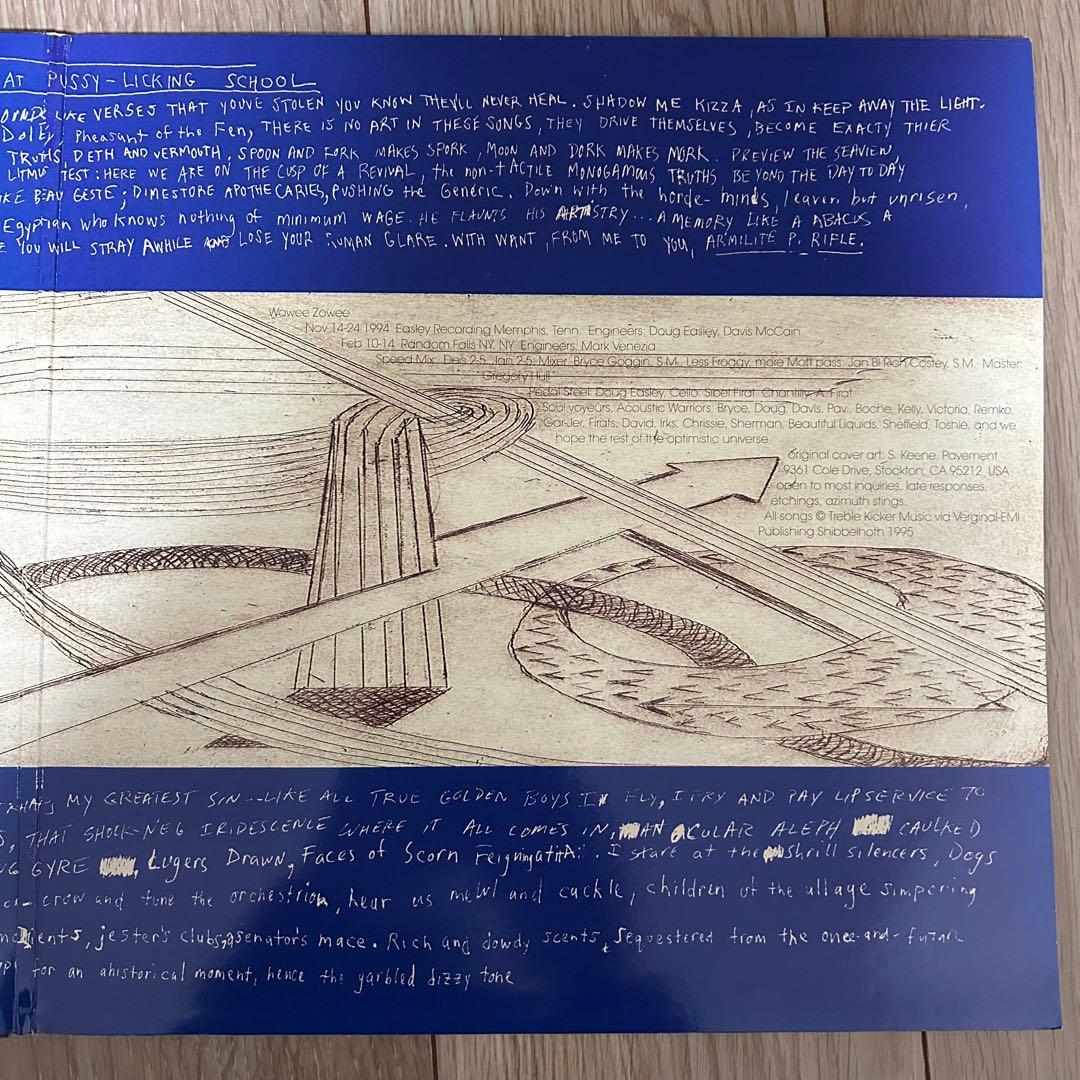 AT PUSSY-LICKING SCHOOL
LIKE VERSES THAT YOUVE STOLEN YOU KNOW THEYLL NEVER HEAL. SHADOW ME KIZZA, AS IN KEEP AWAY THE LIGHT.
Pheasant of the Fen, THERE IS NO ART IN THESE SONGS, THEY DRIVE THEMSELVES, BECOME EXACTY THIER
TRUTHS, DETH AND VERMOUTH. SPOON AND FORK MAKES SPORK, MOON AND DORK MAKES MORK. PREVIEW THE SEAVIEW,
TEST: HERE WE ARE ON THE CUSP OF A REVIVAL, the non-tACTILE MONOGAMOUS TRUTHS BEYOND THE DAY TO DAY
BEAU GESTE; DIMESTORE APOTHECARIES, PUSHING the Generic. Down with the horde-minds, leaven but unrisen,
Egyptian who knows nothing of minimum WAGE. HE FLAUNTS HIS ARTISTRY... A MEMORY LIKE A ABACUS A
YOU WILL STRAY AWHILE LOSE YOUR HUMAN GLARE. WITH WANT, FROM ME TO YOU, ARMILITE P. RIFLE.
Wowee Zowee
Nov 14-24 1994 Easley Recording Memphis, Tenn. Engineers: Doug Easley, Davis McCain
Feb 10-14 Random Falls NY, NY Engineers: Mark Venezia
Speed Mix: Des 2-5, Jan 2-5: Mixer: Bryce Goggin, S.M. Less Froggy, more Mott pass: Jan 8! Rich Costey, S.M. Master:
Gregory Hull
Pedal Steel: Doug Easley, Cello: Sibel Firat, Chantilly: A. Firat
Soul voyeurs, Acoustic Warriors: Bryce, Doug, Davis, Pav, Boche, Kelly, Victoria, Remko,
Gar-Jer, Firats, David, Irks, Chrissie, Sherman, Beautiful Liquids, Sheffield, Toshie, and we
hope the rest of the optimistic universe
original cover art: S. Keene. Pavement
9361 Cole Drive, Stockton, CA 95212 USA
open to most inquiries, late responses,
etchings, azimuth stings.
All songs © Treble Kicker Music via Verginal-EMI
Publishing Shibbelnoth 1995
MY GREATEST SIN--LIKE ALL TRUE GOLDEN BOYS I FLY, I TRY AND PAY LIPSERVICE TO
THAT SHOCK-N'EG IRIDESCENCE WHERE IT ALL COMES IN, AN ACULAR ALEPH CAULKED
GYRE Lugers Drawn, Faces of Scorn . I start at the shrill silencers, Dogs
crow and tune the orchestrion, hear us mewl and cackle, children of the ullage simpering
jester's clubs, senator's mace. Rich and dowdy scents, sequestered from the once-and-future
for an ahistorical moment, hence the garbled dizzy tone